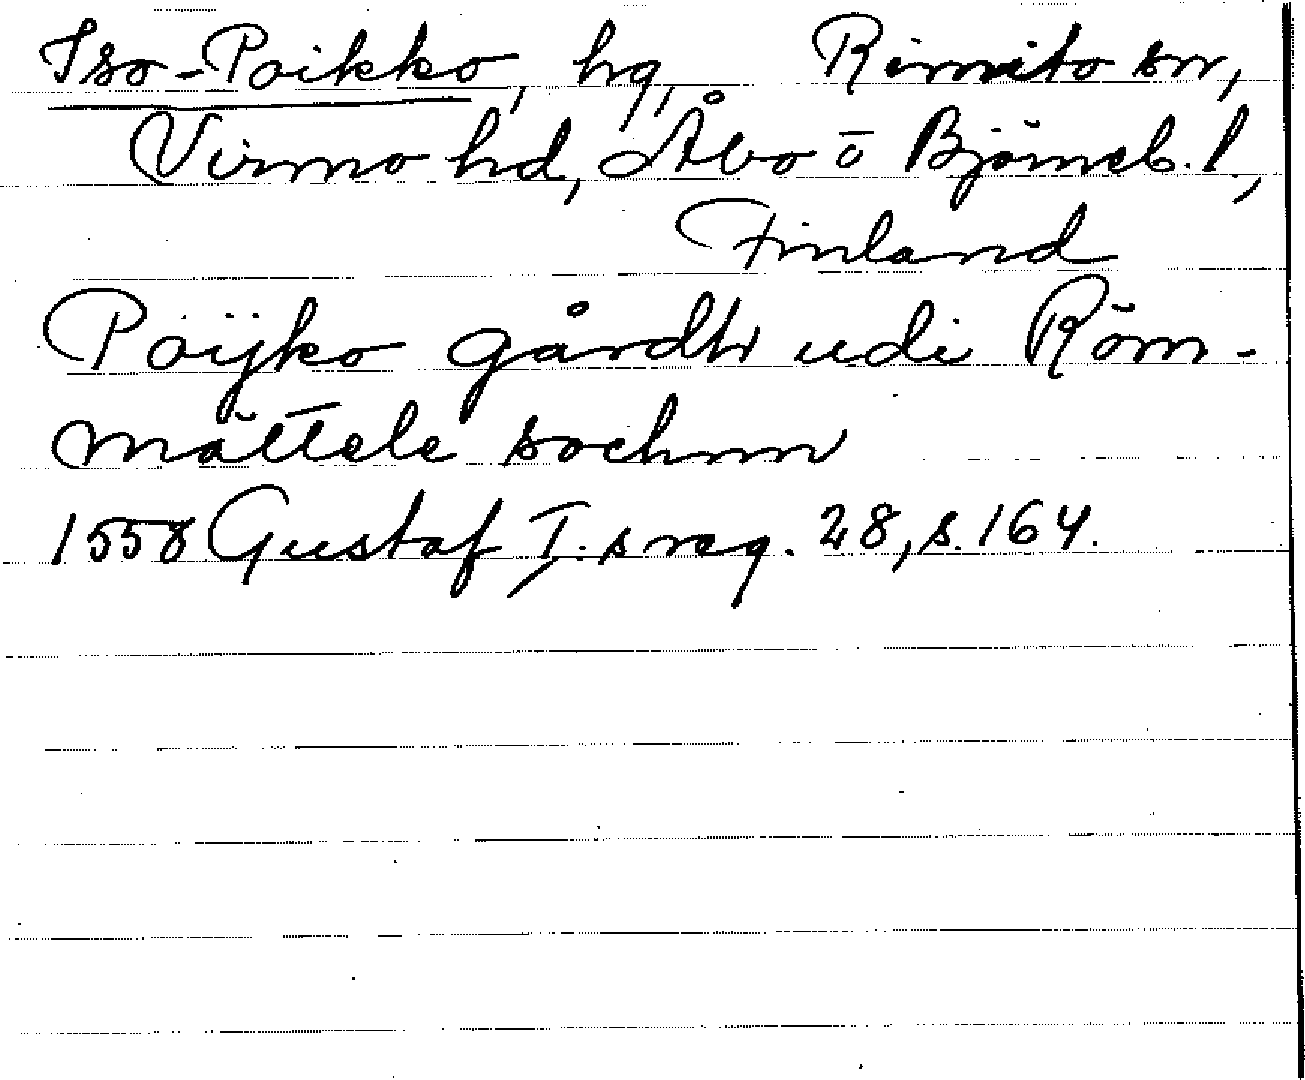 Iso-Poikko, hg, Rimito sn,
Virmo hd, Åbo o Björneb. l.,
Finland
Poijko gårdh udi Röm-
mättele sochnn
1558 Gustaf I.s reg. 28, s. 164.